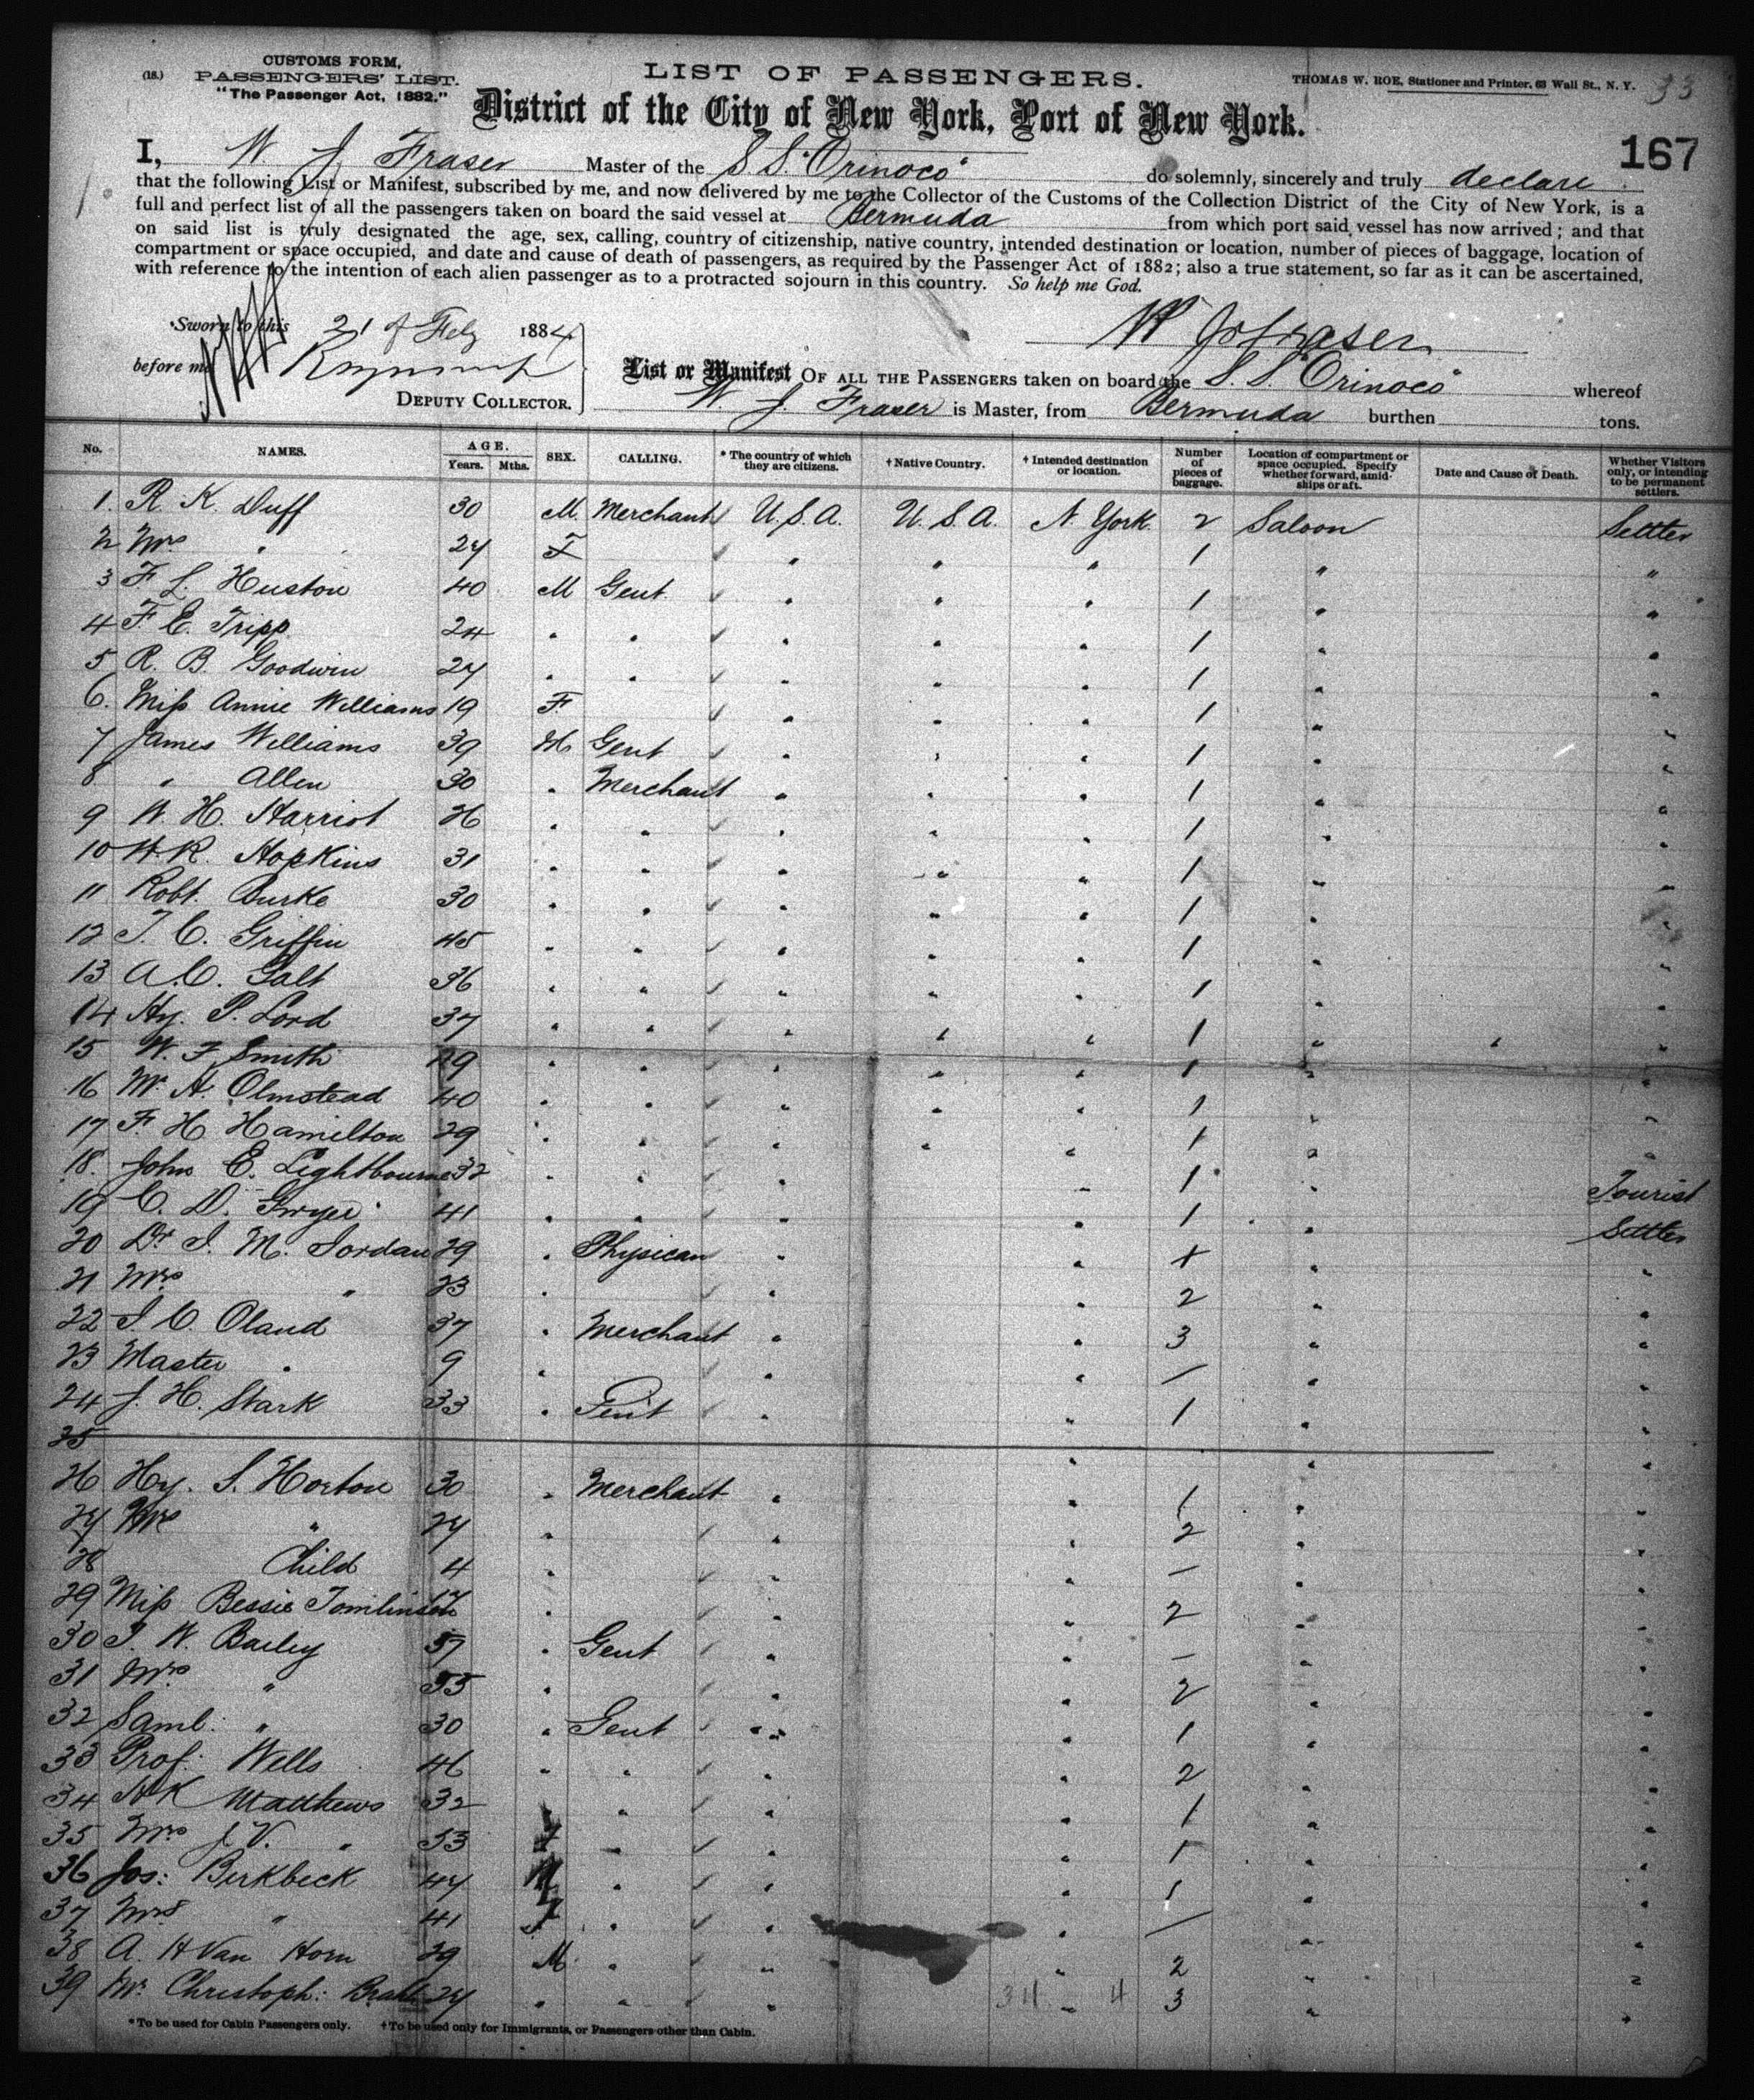 (18.)
CUSTOMS FORM,
PASSENGERS' LIST.
"The Passenger Act, 1882."
LIST OF PASSENGERS.
THOMAS W. ROE, Stationer and Printer, 63 Wall St., N. Y. 33
District of the City of New York, Port of New York.
167
I, W J Fraser Master of the S S. "Orinoco" do solemnly, sincerely and truly declare
that the following List or Manifest, subscribed by me, and now delivered by me to the Collector of the Customs of the Collection District of the City of New York, is a
full and perfect list of all the passengers taken on board the said vessel at Bermuda from which port said vessel has now arrived; and that
on said list is truly designated the age, sex, calling, country of citizenship, native country, intended destination or location, number of pieces of baggage, location of
compartment or space occupied, and date and cause of death of passengers, as required by the Passenger Act of 1882; also a true statement, so far as it can be ascertained,
with reference to the intention of each alien passenger as to a protracted sojourn in this country. So help me God.
Sworn to this 21 of Feby 1884
W J Fraser
before me
DEPUTY COLLECTOR.
List or Manifest OF ALL THE PASSENGERS taken on board the S. S. "Orinoco" whereof
W. J. Fraser is Master, from Bermuda burthen tons.
No. NAMES. AGE. Years. Mths. SEX. CALLING. * The country of which they are citizens. † Native Country. † Intended destination or location. Number of pieces of baggage. Location of compartment or space occupied. Specify whether forward, amidships or aft. Date and Cause of Death. Whether Visitors only, or intending to be permanent settlers.
1. R. K. Duff 30 M. Merchant U.S.A. U.S.A. N. York. 2 Saloon Settler
2 Mrs " 27 F " " " 1 " "
3 F. L. Huston 40 M Gent. " " " 1 " "
4 F. E. Tripp 24 " " " " " 1 " "
5 R. B. Goodwin 27 " " " " " 1 " "
6. Miss Annie Williams 19 F. " " " 1 " "
7 James Williams 39 M Gent " " " 1 " "
8 " Allen 30 " Merchant " " " 1 " "
9 W. H. Harriot 26 " " " " " 1 " "
10 H. R. Hopkins 31 " " " " " 1 " "
11 Robt. Burke 30 " " " " " 1 " "
12 T. C. Griffin 45 " " " " " 1 " "
13 A. C. Galt 36 " " " " " 1 " "
14 Hy. P. Lord 37 " " " " " 1 " " "
15 W. F Smith 29 " " " " " 1 " "
16 W. H. Olmstead 40 " " " " " 1 " "
17 F. H Hamilton 29 " " " " " 1 " "
18. John E. Lightbourne 32 " " " " 1 " Tourist
19 C. D. Gwyer 41 " " " " 1 " Settler
20 Dr. J. M. Jordan 29 " Physican " " " "
21 Mrs " 23 " " " 2 " "
22 J. C. Oland 37 " Merchant " " 3 " "
23 Master " 9 " " " — " "
24 J. H. Stark 33 " Gent " " 1 " "
25 " " "
26 Hy. S. Horton 30 " Merchant " " 1 " "
27 Mrs " 27 " " " 2 " "
28 Child 4 " " — " "
29 Miss Bessie Tomlinson 17 " " " 2 " "
30 J. W. Bailey 57 " Gent " " — " "
31 Mrs " 55 " " " 2 " "
32 Saml: " 30 " Gent " " 1 " "
33 Prof: Wells 46 " " " " 2 " "
34 H K Matthews 32 " " " " 1 " "
35 Mrs J. V. " 53 F " " " 1 " "
36 Jos: Birkbeck 44 M " " " 1 " "
37 Mrs " 41 F " " " — " "
38 A. H Van Horn 29 M. " " " 2 " "
39 Mr Christoph: 27 " " " " 3 " "
34 4 11
* To be used for Cabin Passengers only. † To be used only for Immigrants, or Passengers other than Cabin.